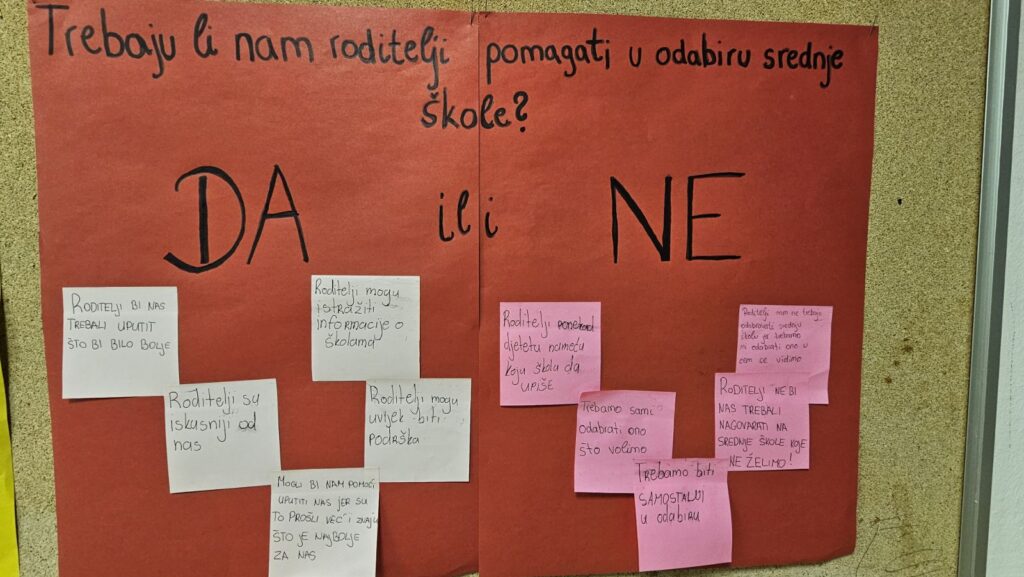 Trebaju li nam roditelji pomagati u odabiru srednje
škole?
DA ili NE
RODITELJI BI NAS
TREBALI UPUTIT
ŠTO BI BILO BOLJE
Roditelji mogu
istražiti
informacije o
školama
Roditelji su
iskusniji od
nas
Roditelji mogu
uvijek biti
podrška
MOGLI BI NAM POMOĆI
UPUTITI NAS JER SU
TO PROŠLI VEĆ I ZNAJU
ŠTO JE NAJBOLJE
ZA NAS
Roditelji ponekad
djetetu nameću
koju škola da
UPIŠE
Roditelji nam ne trebaju
odabirati srednju
školu jer trebamo
mi odabrati ono u
čem se vidimo
Trebamo sami
odabrati ono
što volimo
RODITELJI NE BI
NAS TREBALI
NAGOVARATI NA
SREDNJE ŠKOLE KOJE
NE ŽELIMO!
TREBAMO BITI
SAMOSTALNI
U ODABIRU